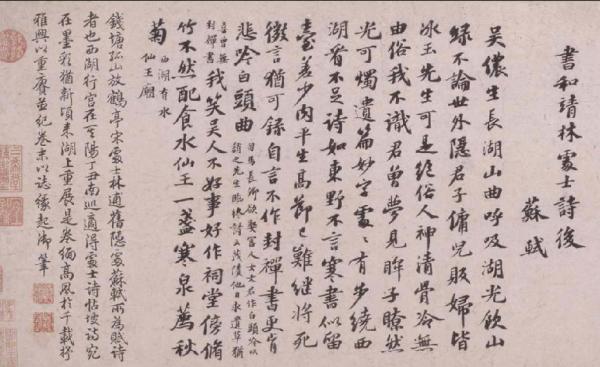 書和靖林處士詩後
蘇軾
吳儂生長湖山曲呼吸湖光飲山
綠不論世外隱君子傭兒販婦皆
冰玉先生可是絕俗人神清骨冷無
由俗我不識君曾夢見眸子瞭然
光可燭遺篇妙字處〻有步繞西
湖看不足詩如東野不言寒書似留
臺差少肉平生高節已難繼將死
微言猶可錄自言不作封禪書更肯
悲吟白頭曲
司馬長卿欲娶富人女文君作白頭吟以
誚之先生臨終詩云茂陵他日求遺草猶
喜曾無
封禪書
我笑吳人不好事好作祠堂傍脩
竹不然配食水仙王一盞寒泉薦秋
菊
西湖有水
仙王廟
錢塘孤山放鶴亭宋處士林逋舊隱處蘇軾所為賦詩
者也西湖行宮在陽丁丑南巡適得處士詩帖坡詩宛
在墨彩猶新頃來湖上重展是卷緬高風於千載抒
雅興以重賡並紀卷末以誌緣起御筆